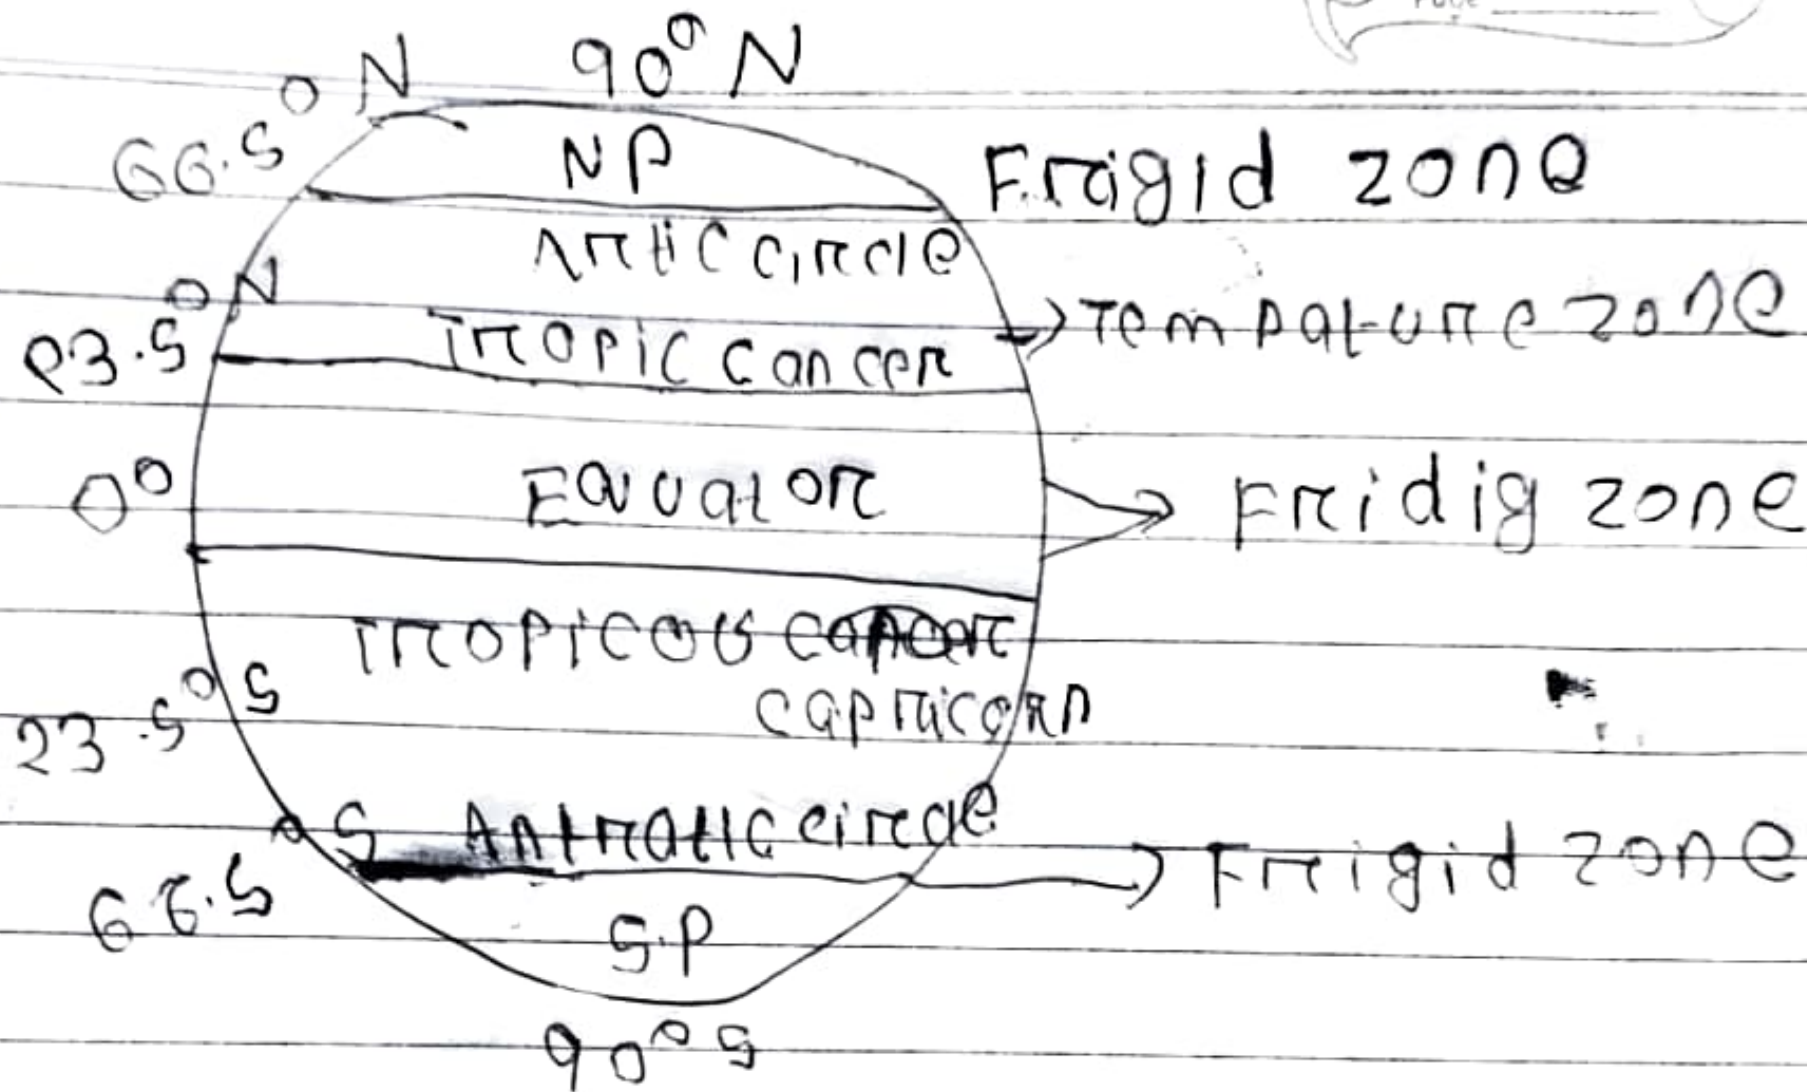 Page
90° N
66.5° N
NP
Fraigid zone
Artic circle
23.5° N
Tropic cancer
→ Tempature zone
0°
Equator
→ Fridig zone
Tropic of
capricorn
23.5° S
66.5° S
Antratic circle
→ Frigid zone
S.P
90° S